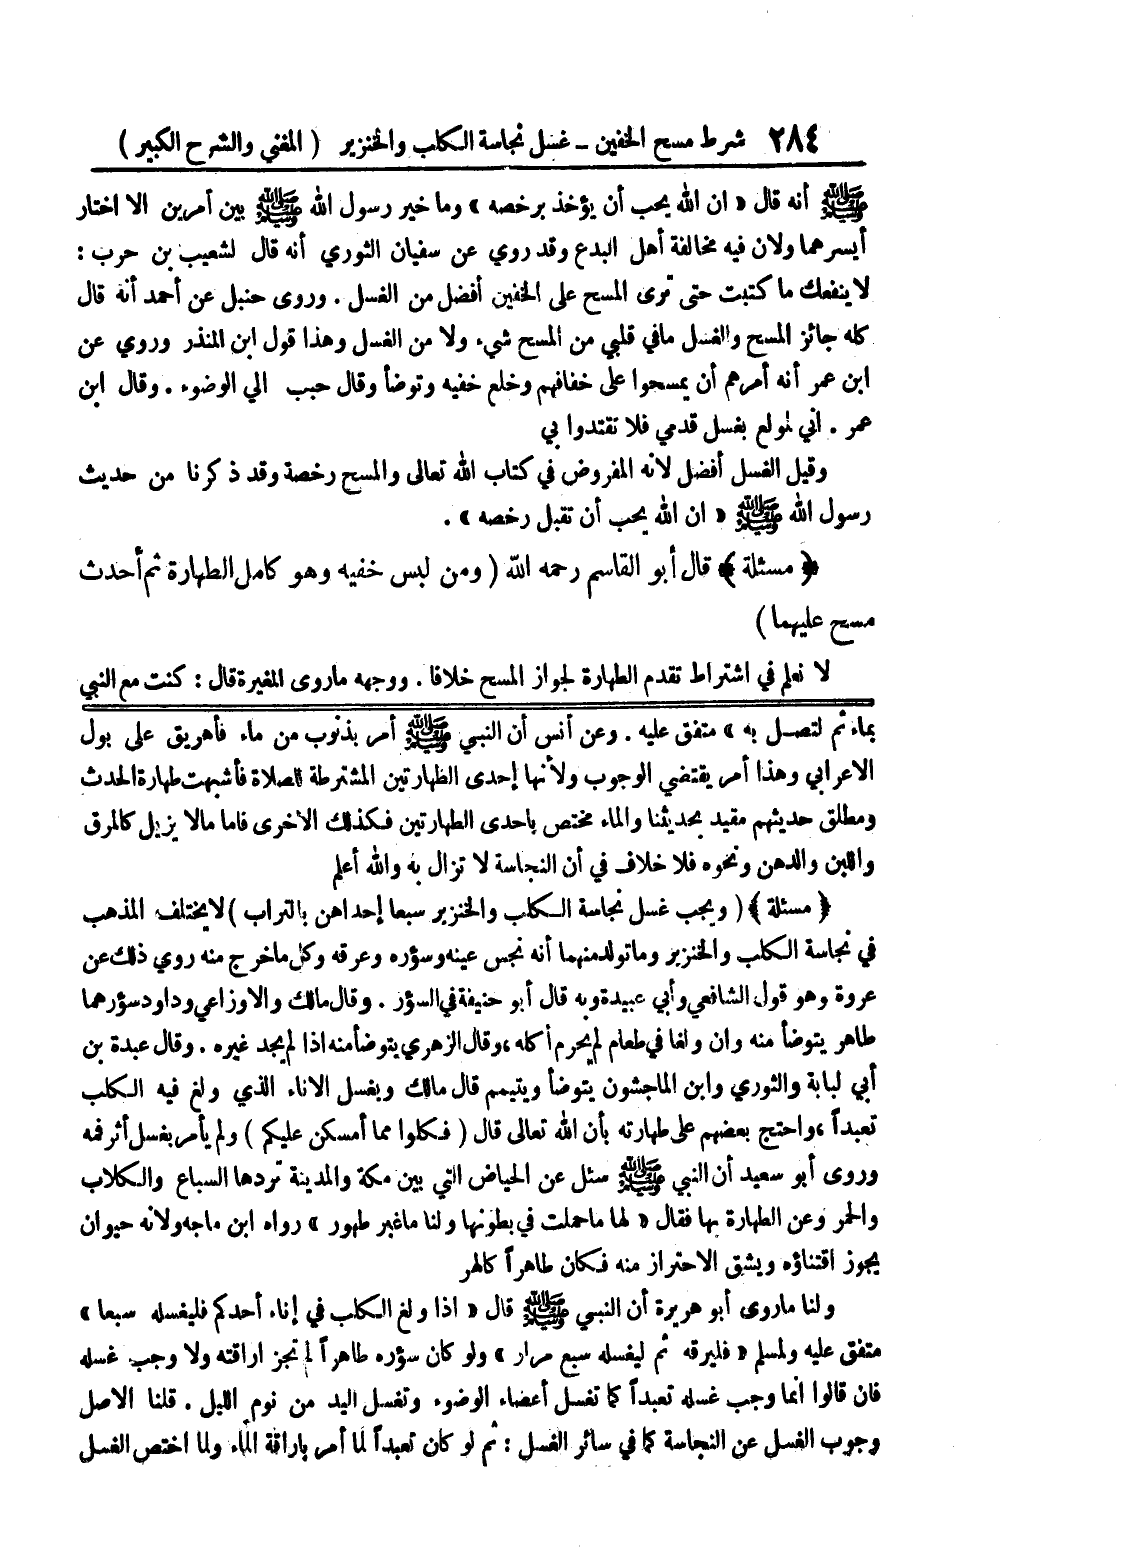 ٢٨٤ شرط مسح الخفين ـ غسل نجاسة الكلب والخنزير ( المغني والشرح الكبير )
ﷺ أنه قال « ان الله يحب أن يؤخذ برخصه » وما خير رسول الله ﷺ بين أمرين الا اختار
أيسرهما ولان فيه مخالفة أهل البدع وقد روي عن سفيان الثوري أنه قال لشعيب بن حرب :
لا ينفعك ما كتبت حتى ترى المسح على الخفين أفضل من الغسل . وروى حنبل عن أحمد أنه قال
كله جائز المسح والغسل مافي قلبي من المسح شيء ولا من الغسل وهذا قول ابن المنذر وروي عن
ابن عمر أنه أمرهم أن يمسحوا على خفافهم وخلع خفيه وتوضأ وقال حبب الي الوضوء . وقال ابن
عمر . اني لمولع بغسل قدمي فلا تقتدوا بي
وقيل الغسل أفضل لانه المفروض في كتاب الله تعالى والمسح رخصة وقد ذكرنا من حديث
رسول الله ﷺ « ان الله يحب أن تقبل رخصه » .
﴿ مسئلة ﴾ قال أبو القاسم رحمه الله ( ومن لبس خفيه وهو كامل الطهارة ثم أحدث
مسح عليهما )
لا نعلم في اشتراط تقدم الطهارة لجواز المسح خلافا . ووجهه ماروى المغيرة قال : كنت مع النبي
بماء ثم لتصل به » متفق عليه . وعن أنس أن النبي ﷺ أمر بذنوب من ماء فأهريق على بول
الاعرابي وهذا أمر يقتضي الوجوب ولأنها إحدى الطهارتين المشترطة للصلاة فأشبهت طهارة الحدث
ومطلق حديثهم مقيد بحديثنا والماء مختص باحدى الطهارتين فكذلك الاخرى فاما مالا يزيل كالمرق
واللبن والدهن ونحوه فلا خلاف في أن النجاسة لا تزال به والله أعلم
﴿ مسئلة ﴾ ( ويجب غسل نجاسة الكلب والخنزير سبعا إحداهن بالتراب ) لا يختلف المذهب
في نجاسة الكلب والخنزير وما تولد منهما أنه نجس عينه وسؤره وعرقه وكل ما خرج منه روي ذلك عن
عروة وهو قول الشافعي وأبي عبيدة وبه قال أبو حنيفة في السؤر . وقال مالك والاوزاعي وداود سؤرهما
طاهر يتوضأ منه وان ولغا في طعام لم يحرم أكله ، وقال الزهري يتوضأ منه اذا لم يجد غيره . وقال عبدة بن
أبي لبابة والثوري وابن الماجشون يتوضأ ويتيمم قال مالك ويغسل الاناء الذي ولغ فيه الكلب
تعبداً ، واحتج بعضهم على طهارته بأن الله تعالى قال ( فكلوا مما أمسكن عليكم ) ولم يأمر بغسل أثر فمه
وروى أبو سعيد أن النبي ﷺ سئل عن الحياض التي بين مكة والمدينة تردها السباع والكلاب
والحمر وعن الطهارة بها فقال « لها ما حملت في بطونها ولنا ما غبر طهور » رواه ابن ماجه ولانه حيوان
يجوز اقتناؤه ويشق الاحتراز منه فكان طاهراً كالهر
ولنا ماروى أبو هريرة أن النبي ﷺ قال « اذا ولغ الكلب في إناء أحدكم فليغسله سبعا »
متفق عليه ولمسلم « فليرقه ثم ليغسله سبع مرار » ولو كان سؤره طاهراً لم تجز اراقته ولا وجب غسله
فان قالوا انما وجب غسله تعبداً كما تغسل أعضاء الوضوء وتغسل اليد من نوم الليل . قلنا الاصل
وجوب الغسل عن النجاسة كما في سائر الغسل : ثم لو كان تعبداً لما أمر باراقة الماء ولما اختص الغسل